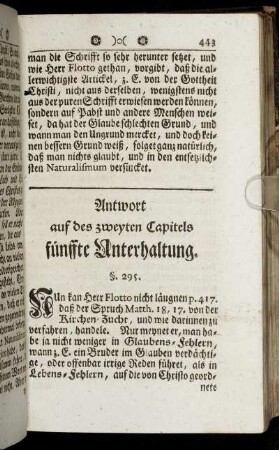 443
man die Schrifft so sehr herunter setzet, und
wie Herr Flotto gethan, vorgibt, daß die al-
lerwichtigste Artickel, z. E. von der Gottheit
Christi, nicht aus derselben, wenigstens nicht
aus der puren Schrifft erwiesen werden können,
sondern auf Pabst und andere Menschen wei-
set, da hat der Glaube schlechten Grund, und
wenn man den Ungrund mercket, und doch kei-
nen bessern Grund weiß, folget gantz natürlich,
daß man nichts glaubt, und in den entsetzlich-
sten Naturalismum versincket.
Antwort
auf des zweyten Capitels
fünffte Unterhaltung.
§. 295.
NUn kan Herr Flotto nicht läugnen p. 417.
daß der Spruch Matth. 18, 17. von der
Kirchen-Zucht, und wie darinnen zu
verfahren, handele. Nur meynet er, man ha-
be ja nicht weniger in Glaubens-Fehlern,
wann z. E. ein Bruder im Glauben verdächti-
ge, oder offenbar irrige Reden führet, als in
Lebens-Fehlern, auf die von Christo geord-
nete